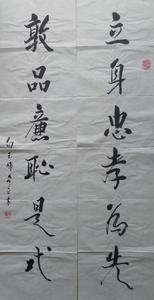 立身忠孝为先
敦品廉耻是式